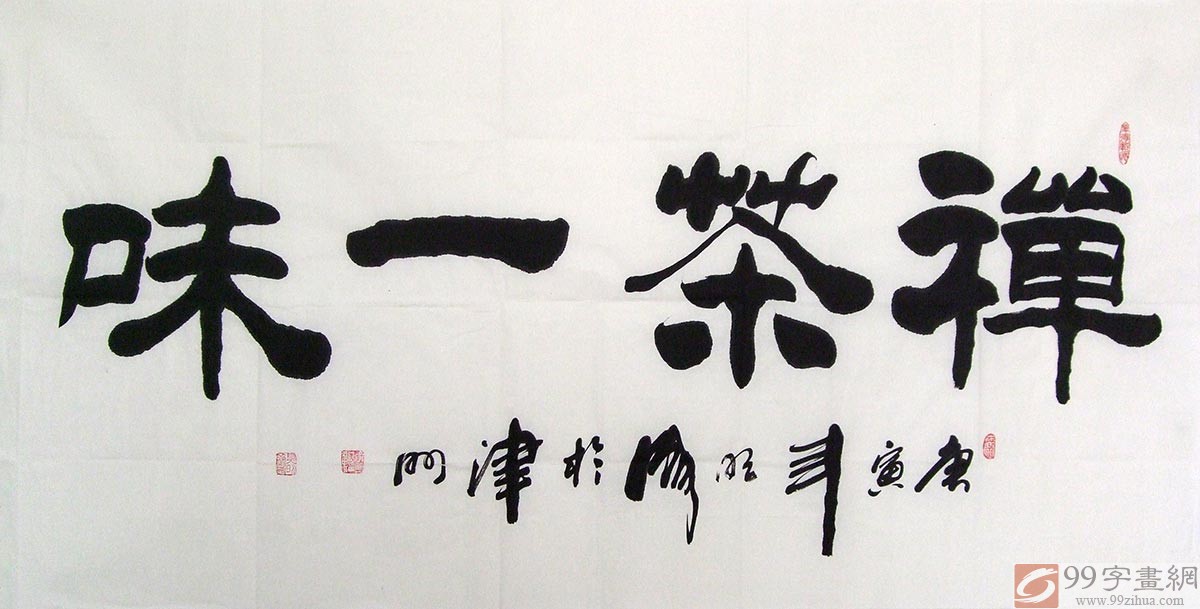 禪茶一味
庚寅年明修於津門
99字畫網
www.99zihua.com